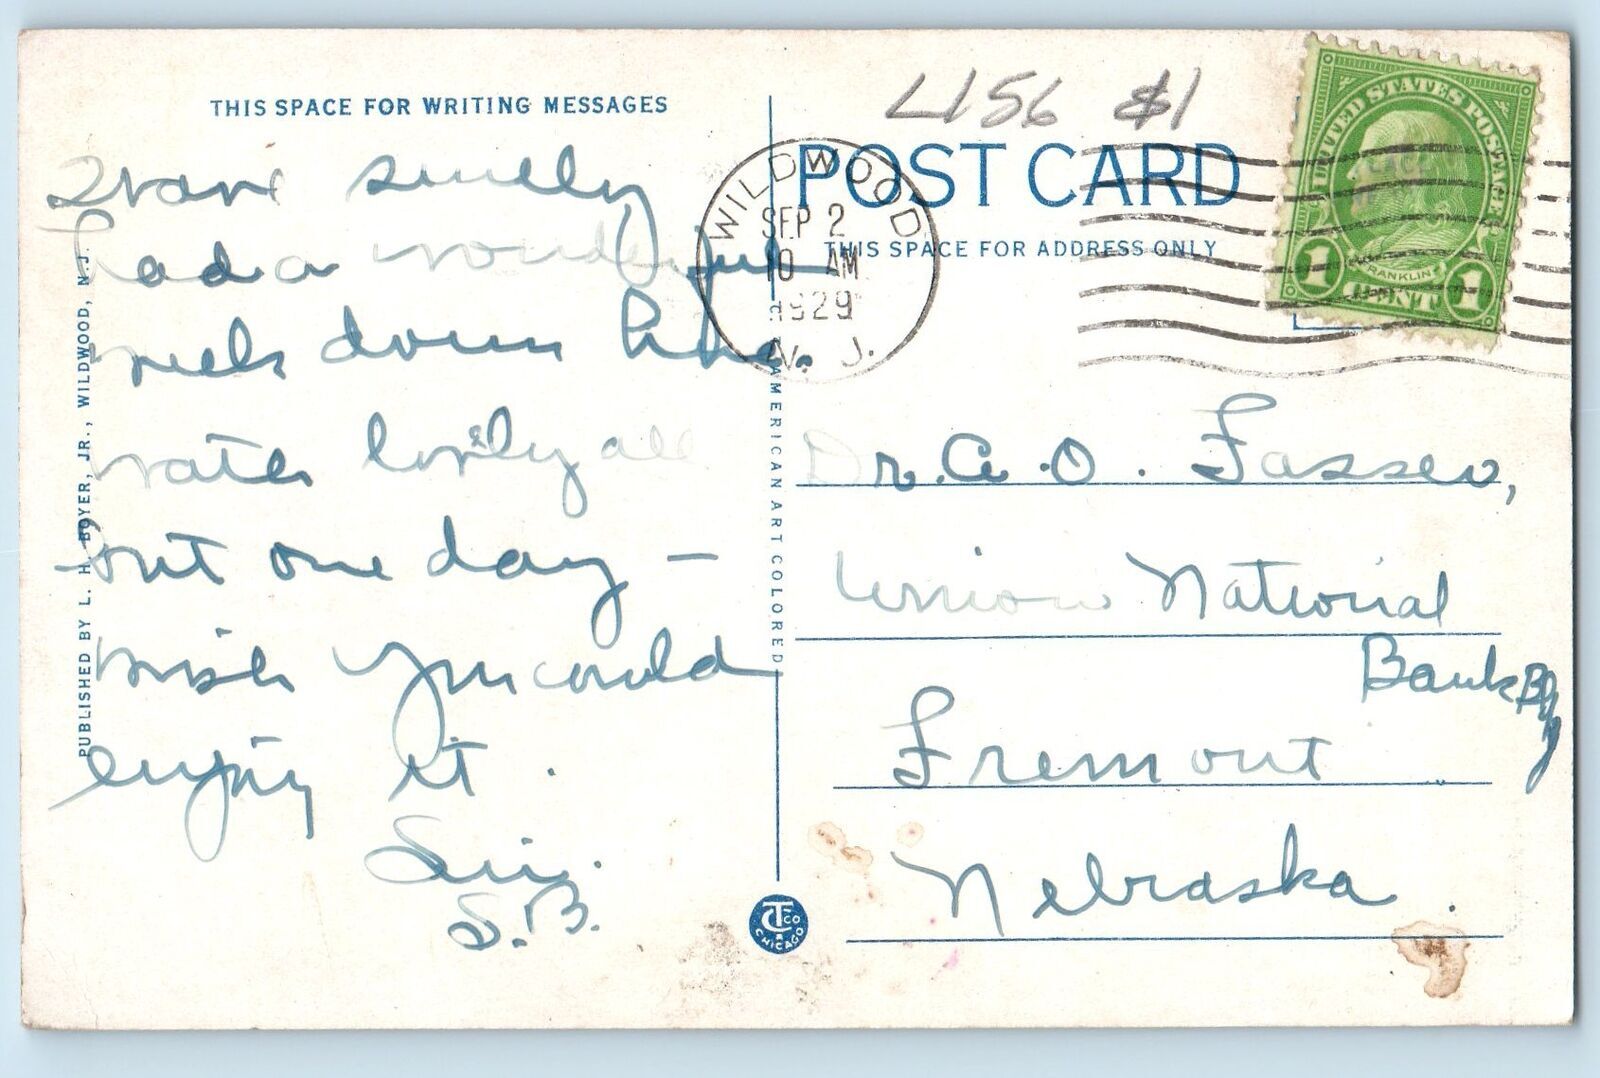 THIS SPACE FOR WRITING MESSAGES
Have surely
had a wonderful
week down here
water lovely all
but one day —
wish you could
enjoy it.
Sin.
S.B.
PUBLISHED BY L. H. BOYER, JR., WILDWOOD, N. J.
"AMERICAN ART COLORED"
CT CO
CHICAGO
L156 $1
POST CARD
THIS SPACE FOR ADDRESS ONLY
WILDWOOD
SEP 2
10 AM
1929
N. J.
UNITED STATES POSTAGE
FRANKLIN
1 CENT 1
Dr. A. O. Fasser,
Union National
Bank Bldg
Fremont
Nebraska.